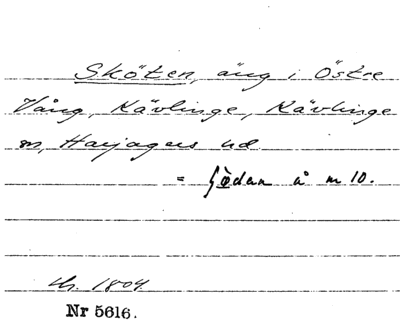 Sköten, äng i Östre
Vång, Kävlinge, Kävlinge
sn, Harjagers hd
= sedan å m 10.
th. 1804.
Nr 5616.